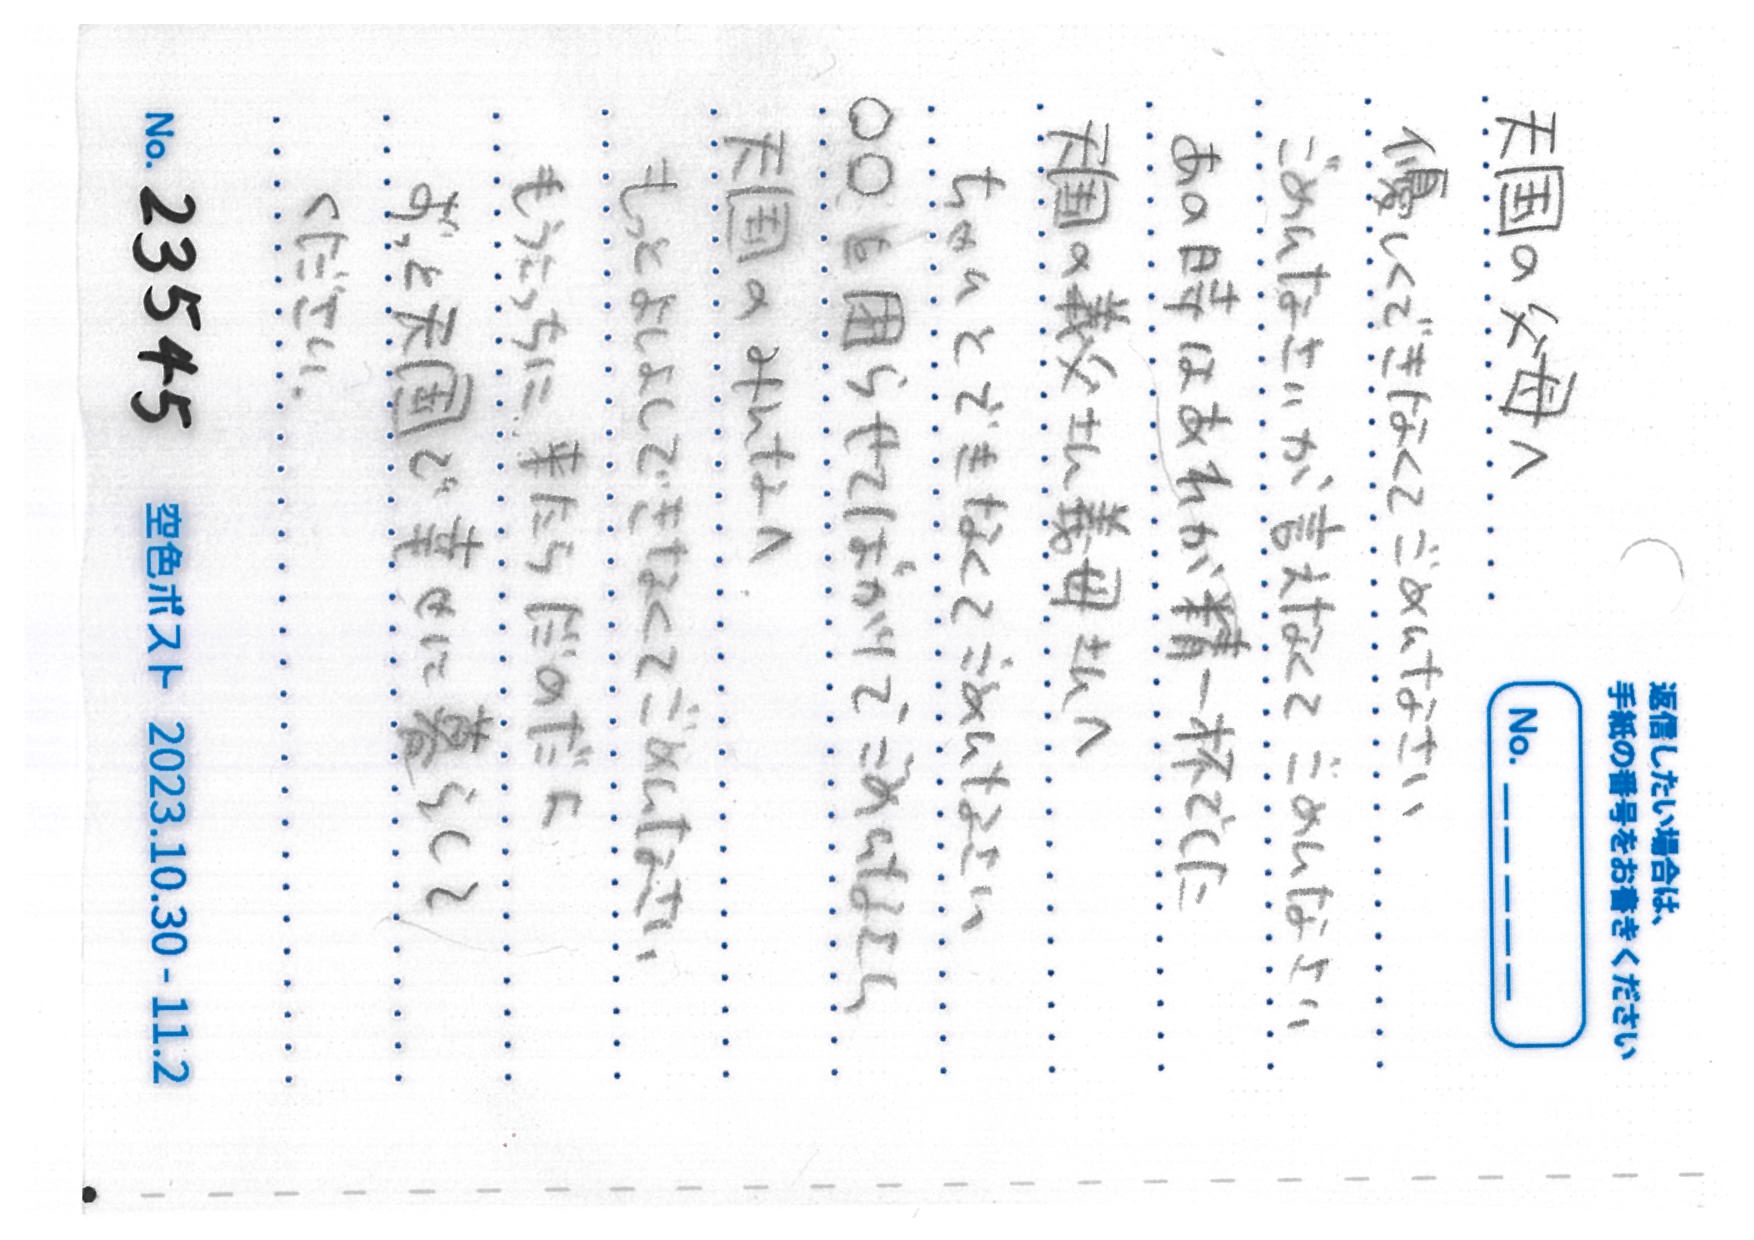 返信したい場合は、
手紙の番号をお書きください
No. _ _ _ _ _
天国の父母へ
優しくできなくてごめんなさい
ごめんなさいが言えなくてごめんなさい
あの時はあれが精一杯でした
天国の義父さん義母さんへ
ちゃんとできなくてごめんなさい
○○を困らせてばかりでごめんなさい
天国のみんなへ
もっとよしよしできなくてごめんなさい
もうこっちに来たらだめだよ
ずっと天国で幸せに暮らして
ください.
No. 23545 空色ポスト 2023.10.30 - 11.2